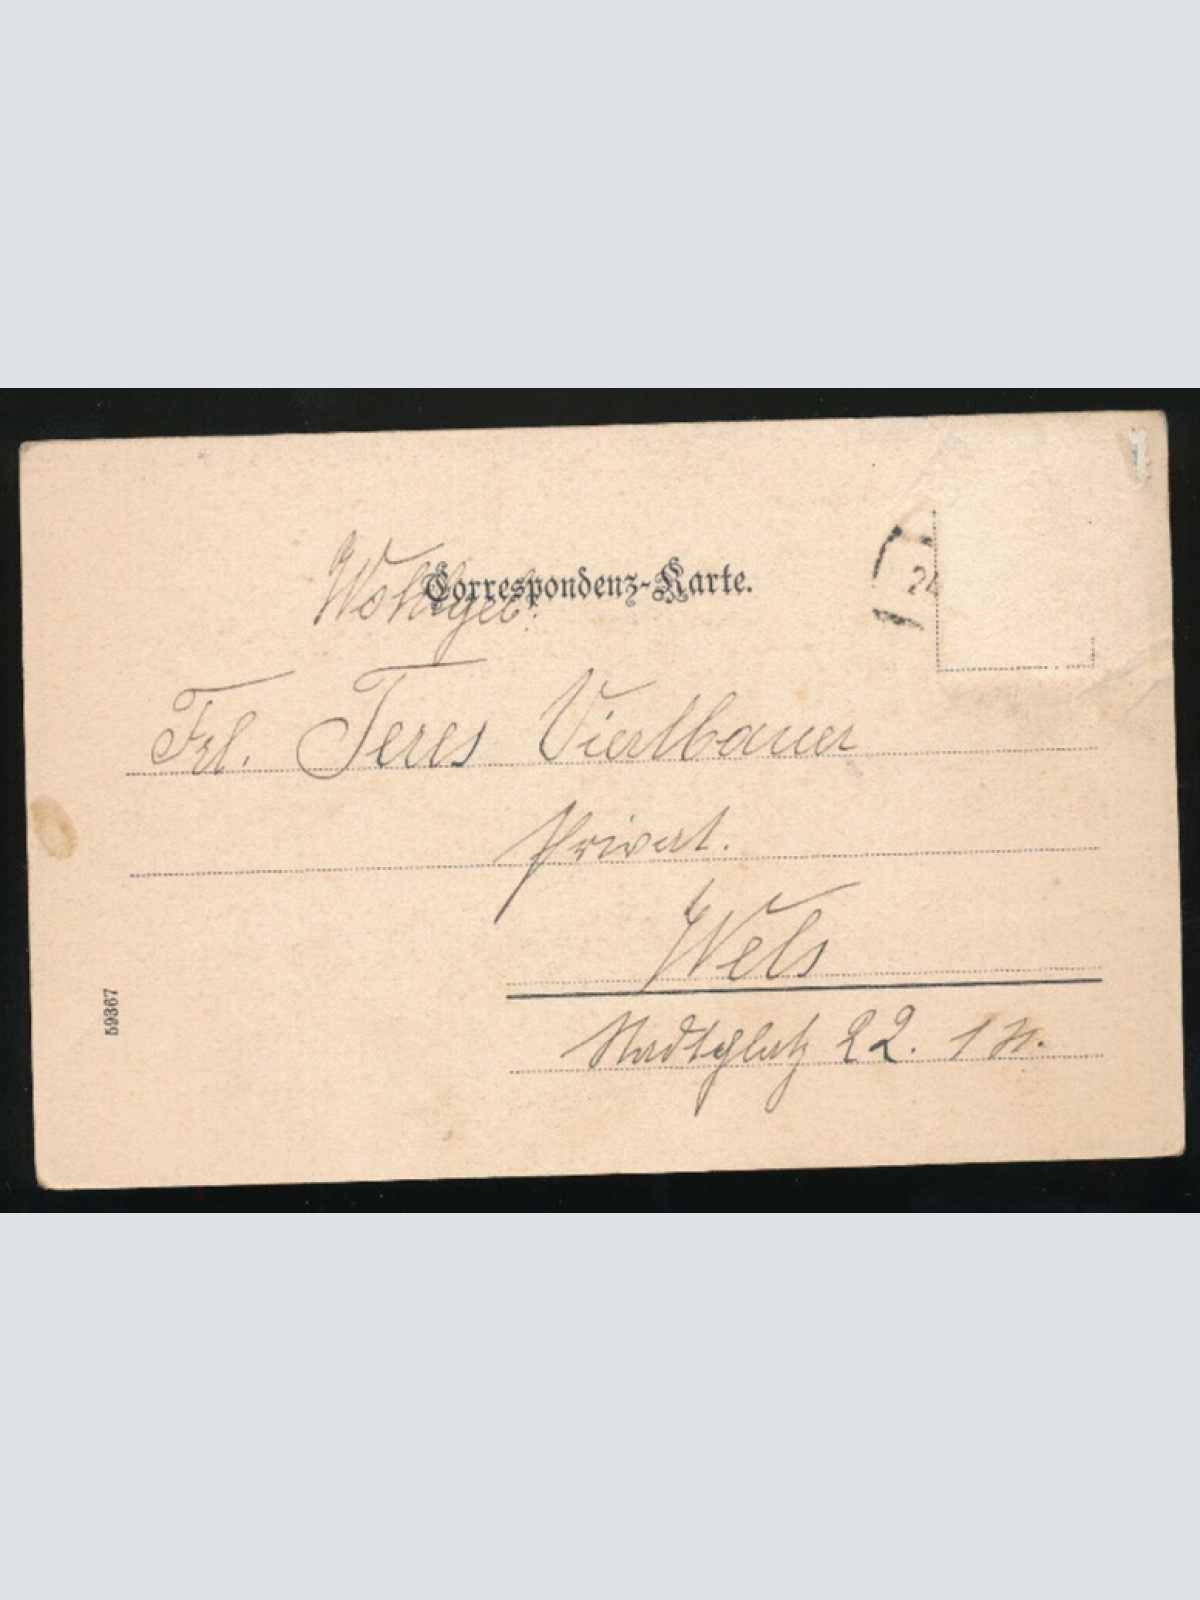 Correspondenz-Karte.
Wohlgeb.
24
Frl. Teres Viertbauer
Privat.
Wels
Stadtplatz 22. 1
59367